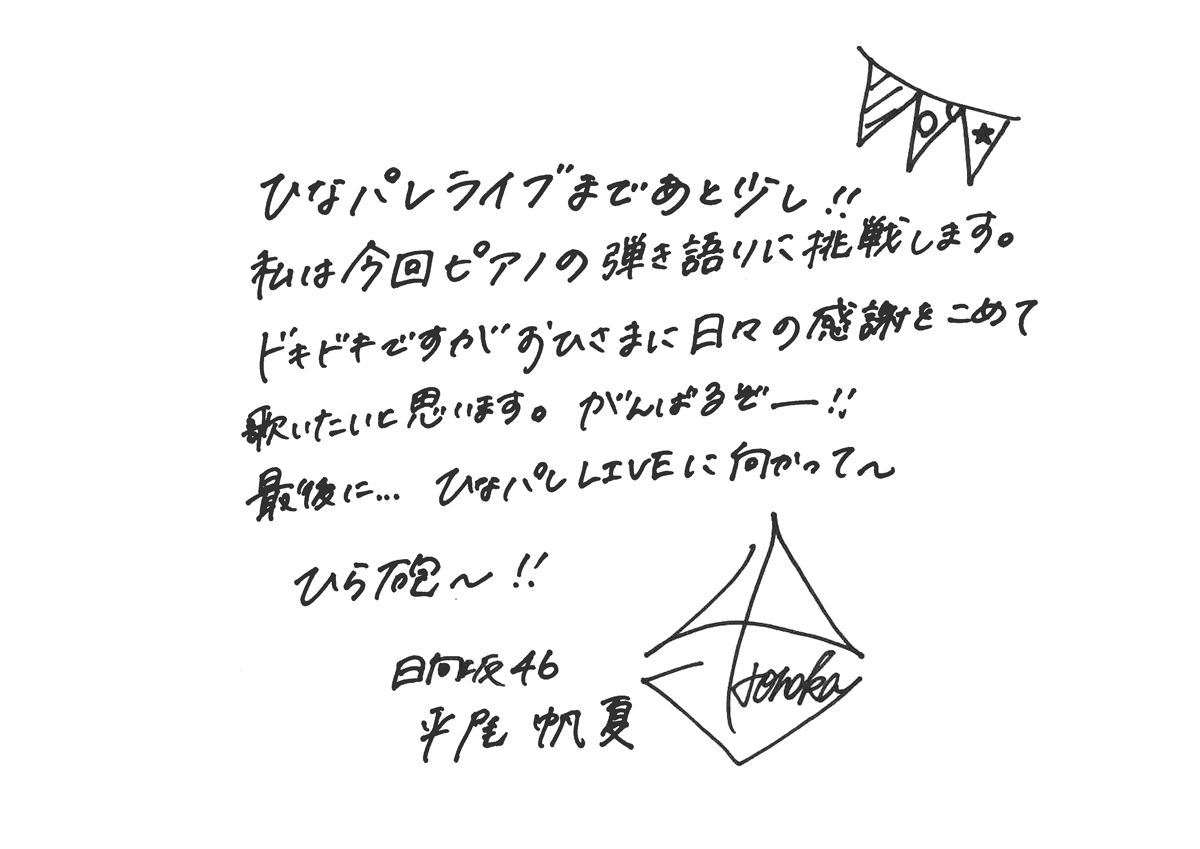 ひなパレライブまであと少し!!
私は今回ピアノの弾き語りに挑戦します。
ドキドキですがおひさまに日々の感謝をこめて
歌いたいと思います。がんばるぞー!!
最後に… ひなパレLIVEに向かって〜
ひら砲〜!!
日向坂46
平尾 帆夏
Honoka